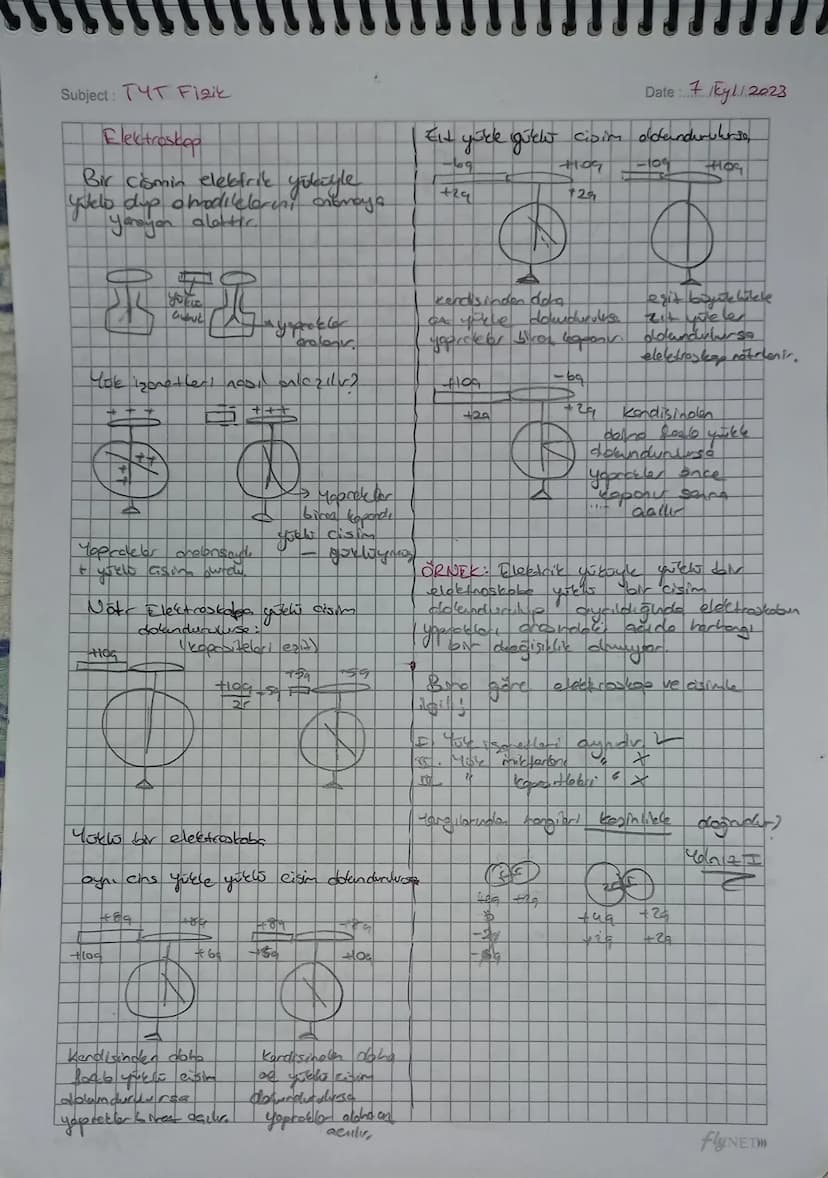 Subject: TYT Fizik
Date: 7 /Eyl/ 2023
Elektroskop
Bir cismin elektrik yüküyle
yüklü olup olmadıklarını anlamaya
yarayan alettir.
yapraklar
aralanır.
Yük işaretleri nasıl anlaşılır?
+ + +
+++
++
++
→ yapraklar
biraz kapandı
yüklü cisim
Yapraklar aralansaydı
+ yüklü cisim olurdu
Nötr Elektroskoba yüklü cisim
dokundurulursa:
(kapasiteleri eşit)
+10q
+10q
2r
Yüklü bir elektroskoba
aynı cins yükle yüklü cisim dokundurulursa
+8q +8q
+10q +6q
+10q
Kendisinden daha
fazla yüklü cisim
dokundurulursa
yapraklar biraz açılır.
Kendisinden daha
az yüklü cisim
dokundurulursa
Yapraklar daha az
açılır.
Zıt yükle yüklü cisim dokundurulursa
-6q +10q
+2q +2q
-10q +10q
kendisinden daha
az yükle dokundurulursa
yapraklar biraz kapanır.
eşit büyüklükte
zıt yükler
dokundurulursa
elektroskop nötrlenir.
+10q -6q
+2q +2q
Kendisinden
daha fazla yükle
dokundurulursa
yapraklar önce
kapanır sonra
açılır
ÖRNEK: Elektrik yüküyle yüklü bir
elektroskoba yüklü bir cisim
dokundurulup ayrıldığında elektroskobun
yaprakları arasındaki açıda herhangi
bir değişiklik olmuyor.
Buna göre elektroskop ve cisimle
ilgili;
I. Yük işaretleri aynıdır. ✓
II. Yük miktarları " X
III. " kapasiteleri " X
Yargılarından hangileri kesinlikle doğrudur?
Yalnız I
+2q
+4q +2q
+2q
flyNET